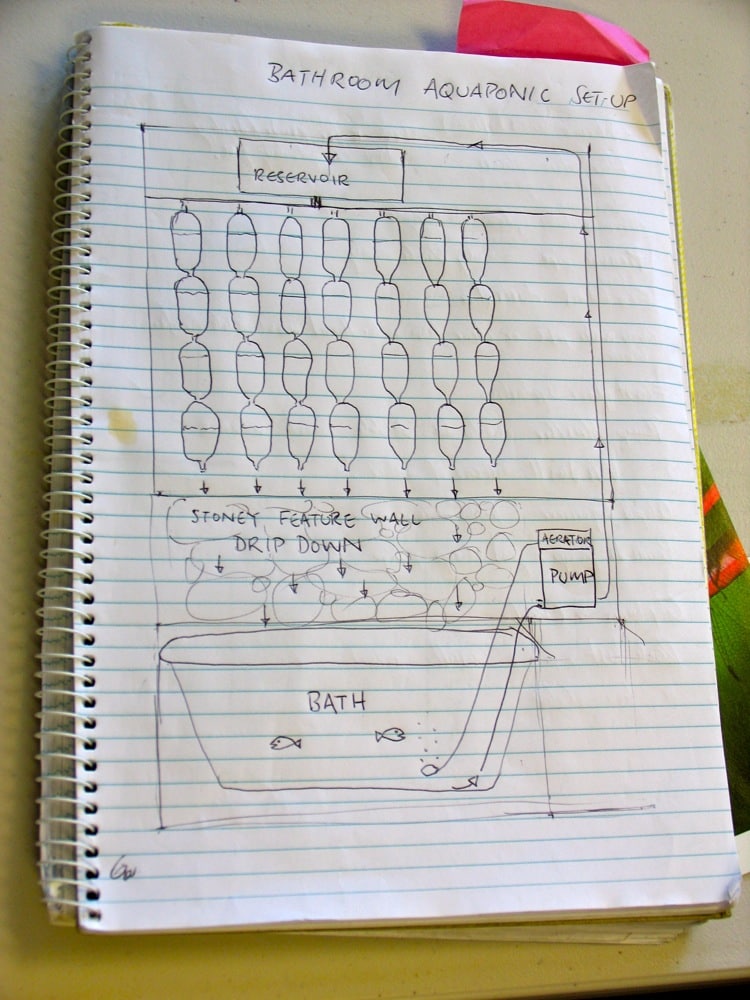 BATHROOM AQUAPONIC SET-UP
RESERVOIR
STONEY FEATURE WALL
DRIP DOWN
AERATOR
PUMP
BATH